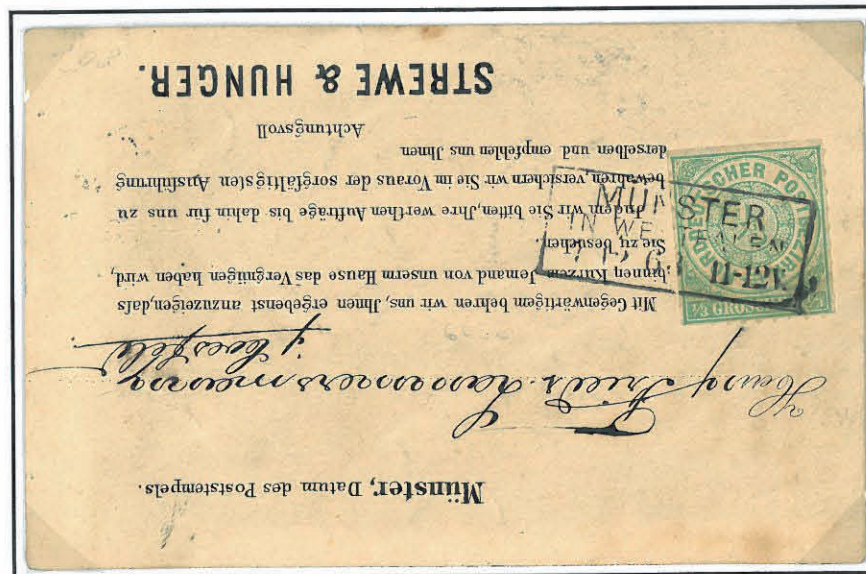 Münster, Datum des Poststempels.
Friedr.
Coesfeld
Mit Gegenwärtigem behren wir uns, Jhnen ergebenst anzuzeigen, daſs
binnen Kurzem Jemand von unserm Hause das Vergnügen haben wird,
Sie zu besuchen.
Jndem wir Sie bitten, Jhre werthen Aufträge bis dahin für uns zu
bewahren, versichern wir Sie im Voraus der sorgfältigsten Ausführung
derselben und empfehlen uns Jhnen
Achtungsvoll
STREWE & HUNGER.
MÜNSTER
IN WESTFALEN
11-12V.
NORDDEUTSCHER POSTBEZIRK
1/3 GROSCHEN 1/3